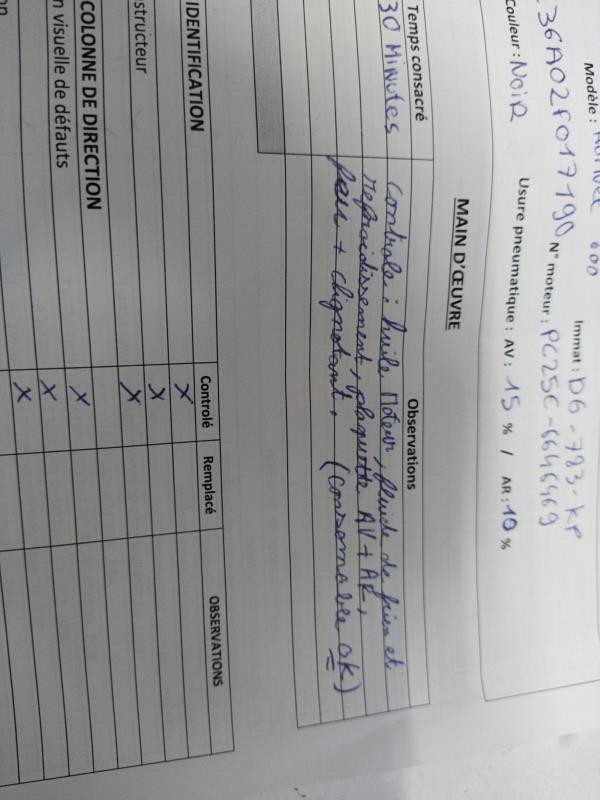 Modèle : Hornet 600 Immat : DG-783-KP
36A02F017190 N° moteur : PC25E-6646469
Couleur : NOIR Usure pneumatique : AV : 15 % / AR : 10 %
MAIN D'ŒUVRE
Temps consacré Observations
30 Minutes Controle : huile moteur, fluide de frein et
refroidissement, plaquette AV + AR,
feu + clignotant. (consomable ok)
Controlé Remplacé OBSERVATIONS
IDENTIFICATION X
X
structeur X
COLONNE DE DIRECTION X
n visuelle de défauts X
X
on